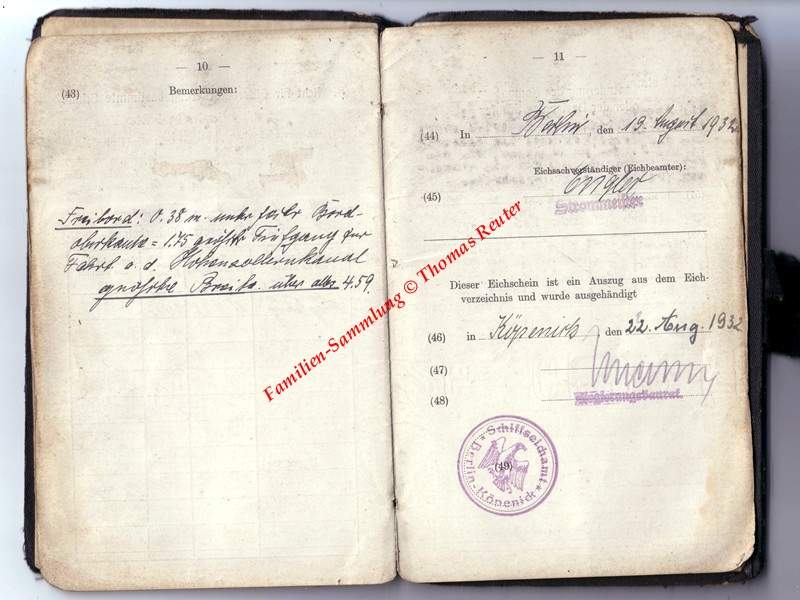 — 10 —
(43) Bemerkungen:
Freibord: 0.38 m. unter fester Bord-
oberkante = 1.75 größter Tiefgang für
Fahrt a. d. Hohenzollernkanal
größte Breite über alles 4.59.
— 11 —
(44) In Berlin, den 19. August 1932
Eichsachverständiger (Eichbeamter):
(45) Engler
Strommeister
Dieser Eichschein ist ein Auszug aus dem Eich-
verzeichnis und wurde ausgehändigt
(46) in Köpenick den 22. Aug. 1932
(47)
(48) Regierungsbaurat.
Schiffseichamt
(49)
Berlin-Köpenick
Familien-Sammlung © Thomas Reuter